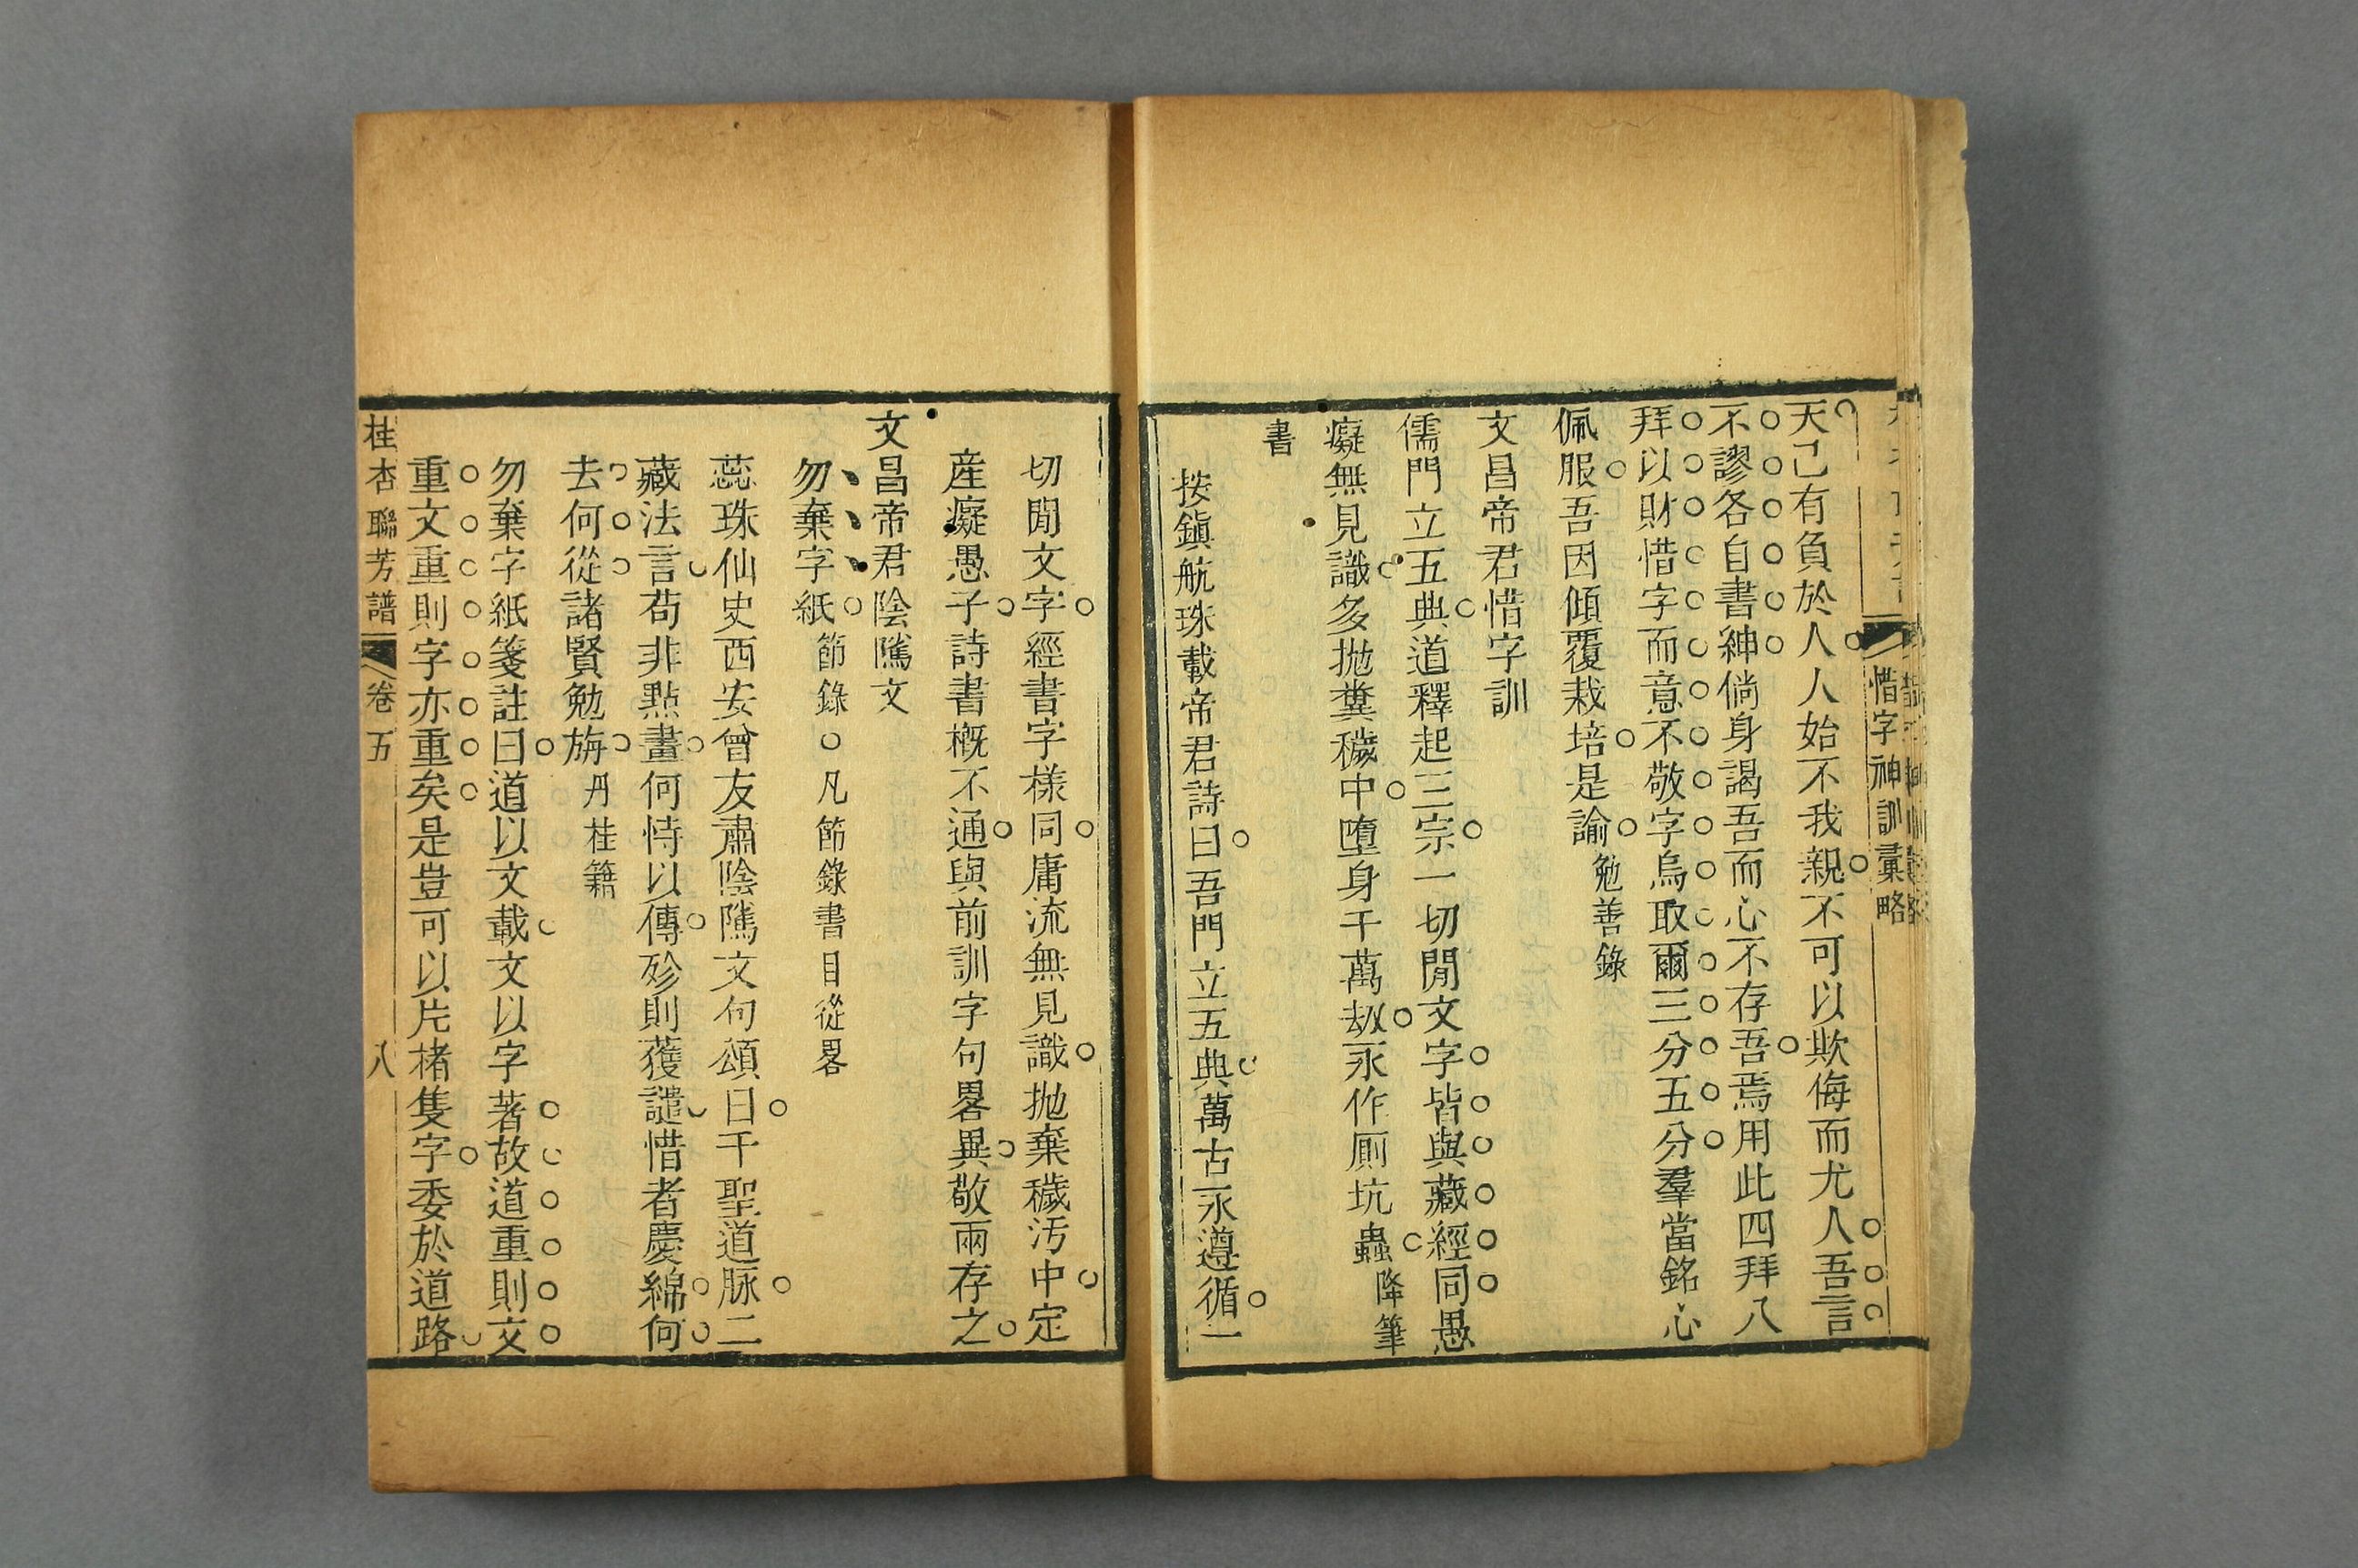 惜字神訓彙略
天己有負於人人始不我親不可以欺侮而尤人吾言
不謬各自書紳倘身謁吾而心不存吾焉用此四拜八
拜以財惜字而意不敬字烏取爾三分五分羣當銘心
佩服吾因傾覆栽培是諭勉善錄
文昌帝君惜字訓
儒門立五典道釋起三宗一切閒文字皆與藏經同愚
癡無見識多抛糞穢中墮身千萬劫永作厠坑蟲降筆
書
按鎭航珠載帝君詩曰吾門立五典萬古永遵循一
切閒文字經書字樣同庸流無見識抛棄穢汚中定
産癡愚子詩書槪不通與前訓字句畧異敬兩存之
文昌帝君陰隲文
勿棄字紙節錄○凡節錄書目從畧
蕊珠仙史西安曾友肅陰隲文句頌曰千聖道脉二
藏法言苟非點畫何恃以傳殄則蒦譴惜者慶綿何
去何從諸賢勉旃丹桂籍
勿棄字紙箋註曰道以文載文以字著故道重則文
重文重則字亦重矣是豈可以片楮隻字委於道路
桂杏聯芳譜 卷五 八